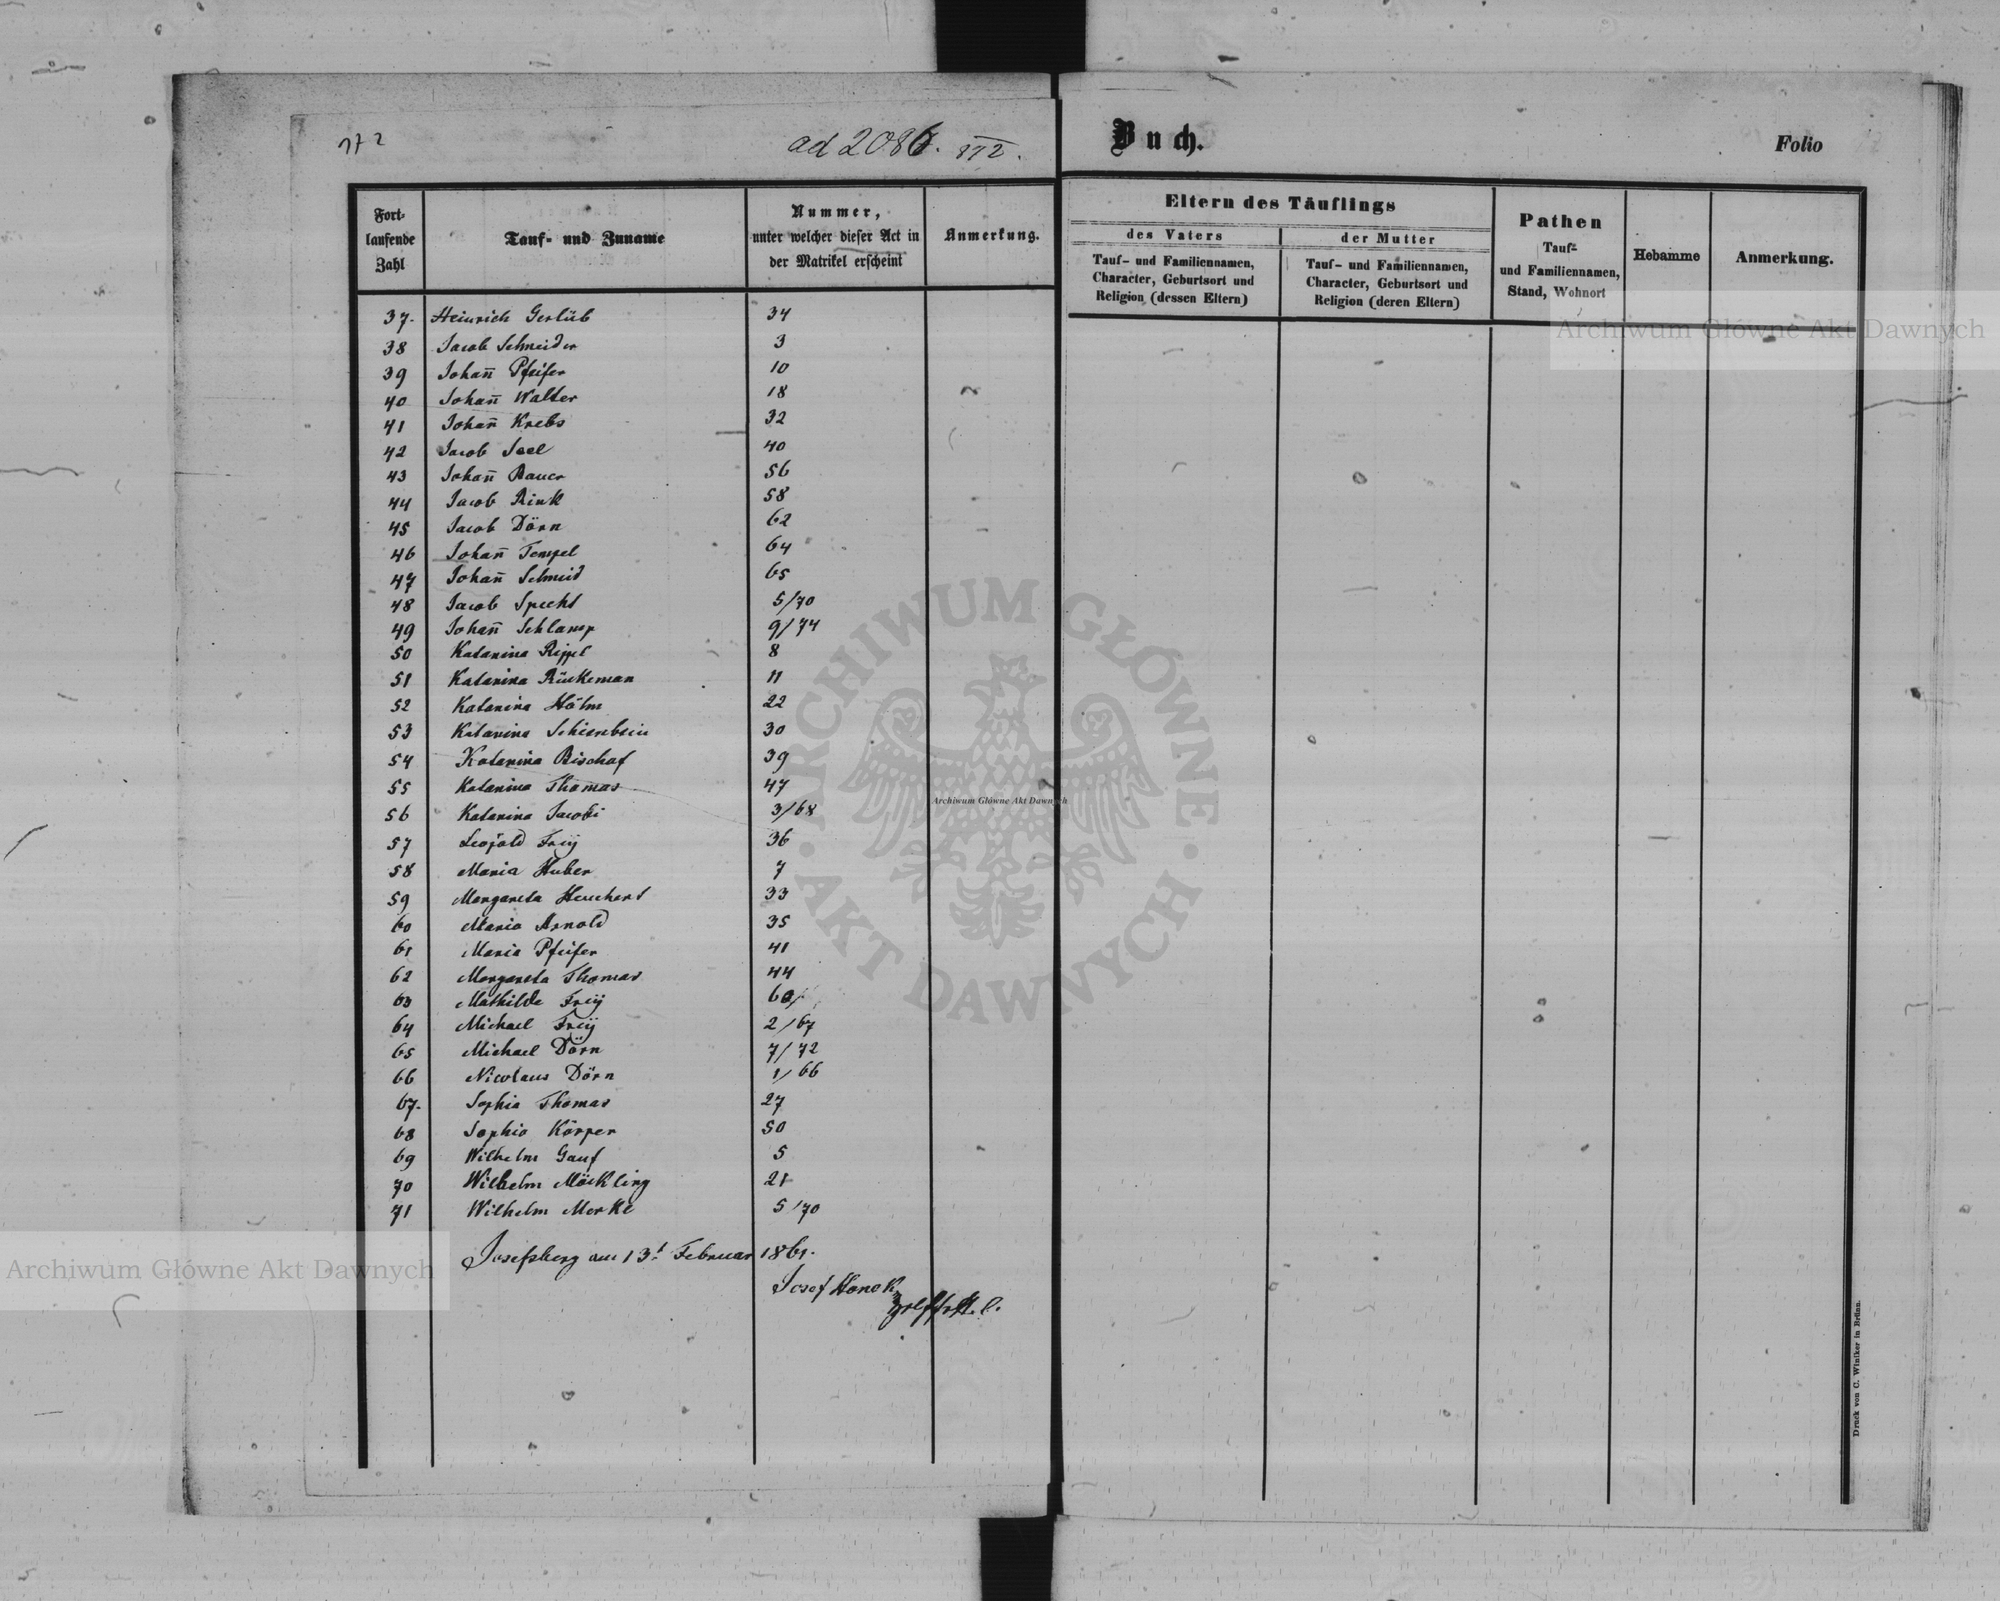 172
ad 2086. 172.
Fort-
laufende
Zahl
Tauf- und Zuname
Nummer,
unter welcher dieser Act in
der Matrikel erscheint
Anmerkung.
37. Heinrich Gerlüb 34
38 Jacob Schneider 3
39 Johan̄ Pfeifer 10
40 Johan̄ Walter 18
41 Johan̄ Krebs 32
42 Jacob Seel 40
43 Johan̄ Bauer 56
44 Jacob Rink 58
45 Jacob Dörn 62
46 Johan̄ Tempel 64
47 Johan̄ Schmid 65
48 Jacob Specht 5/70
49 Johan̄ Schlamp 9/74
50 Katarina Rippel 8
51 Katarina Rückeman 11
52 Katarina Hölm 22
53 Katarina Schienbein 30
54 Katarina Bischof 39
55 Katarina Thomas 47
56 Katarina Jacobi 3/68
57 Leopold Freÿ 36
58 Maria Huber 7
59 Margareta Heuchert 33
60 Maria Arnold 35
61 Maria Pfeifer 41
62 Margareta Thomas 44
63 Mathilde Freÿ 60
64 Michael Freÿ 2/67
65 Michael Dörn 7/72
66 Nicolaus Dörn 1/66
67. Sophia Thomas 27
68 Sophia Körper 50
69 Wilhelm Gauf 5
70 Wilhelm Möckling 21
71 Wilhelm Merke 5/70
Josefsberg am 13t Februar 1861.
Josef Hanek
Buch.
Folio
Eltern des Täuflings
des Vaters
Tauf- und Familiennamen,
Character, Geburtsort und
Religion (dessen Eltern)
der Mutter
Tauf- und Familiennamen,
Character, Geburtsort und
Religion (deren Eltern)
Pathen
Tauf-
und Familiennamen,
Stand, Wohnort
Hebamme
Anmerkung.
Druck von C. Winiker in Brünn.
Archiwum Główne Akt Dawnych
ARCHIWUM GŁÓWNE · AKT DAWNYCH ·
Archiwum Główne Akt Dawnych
Archiwum Główne Akt Dawnych